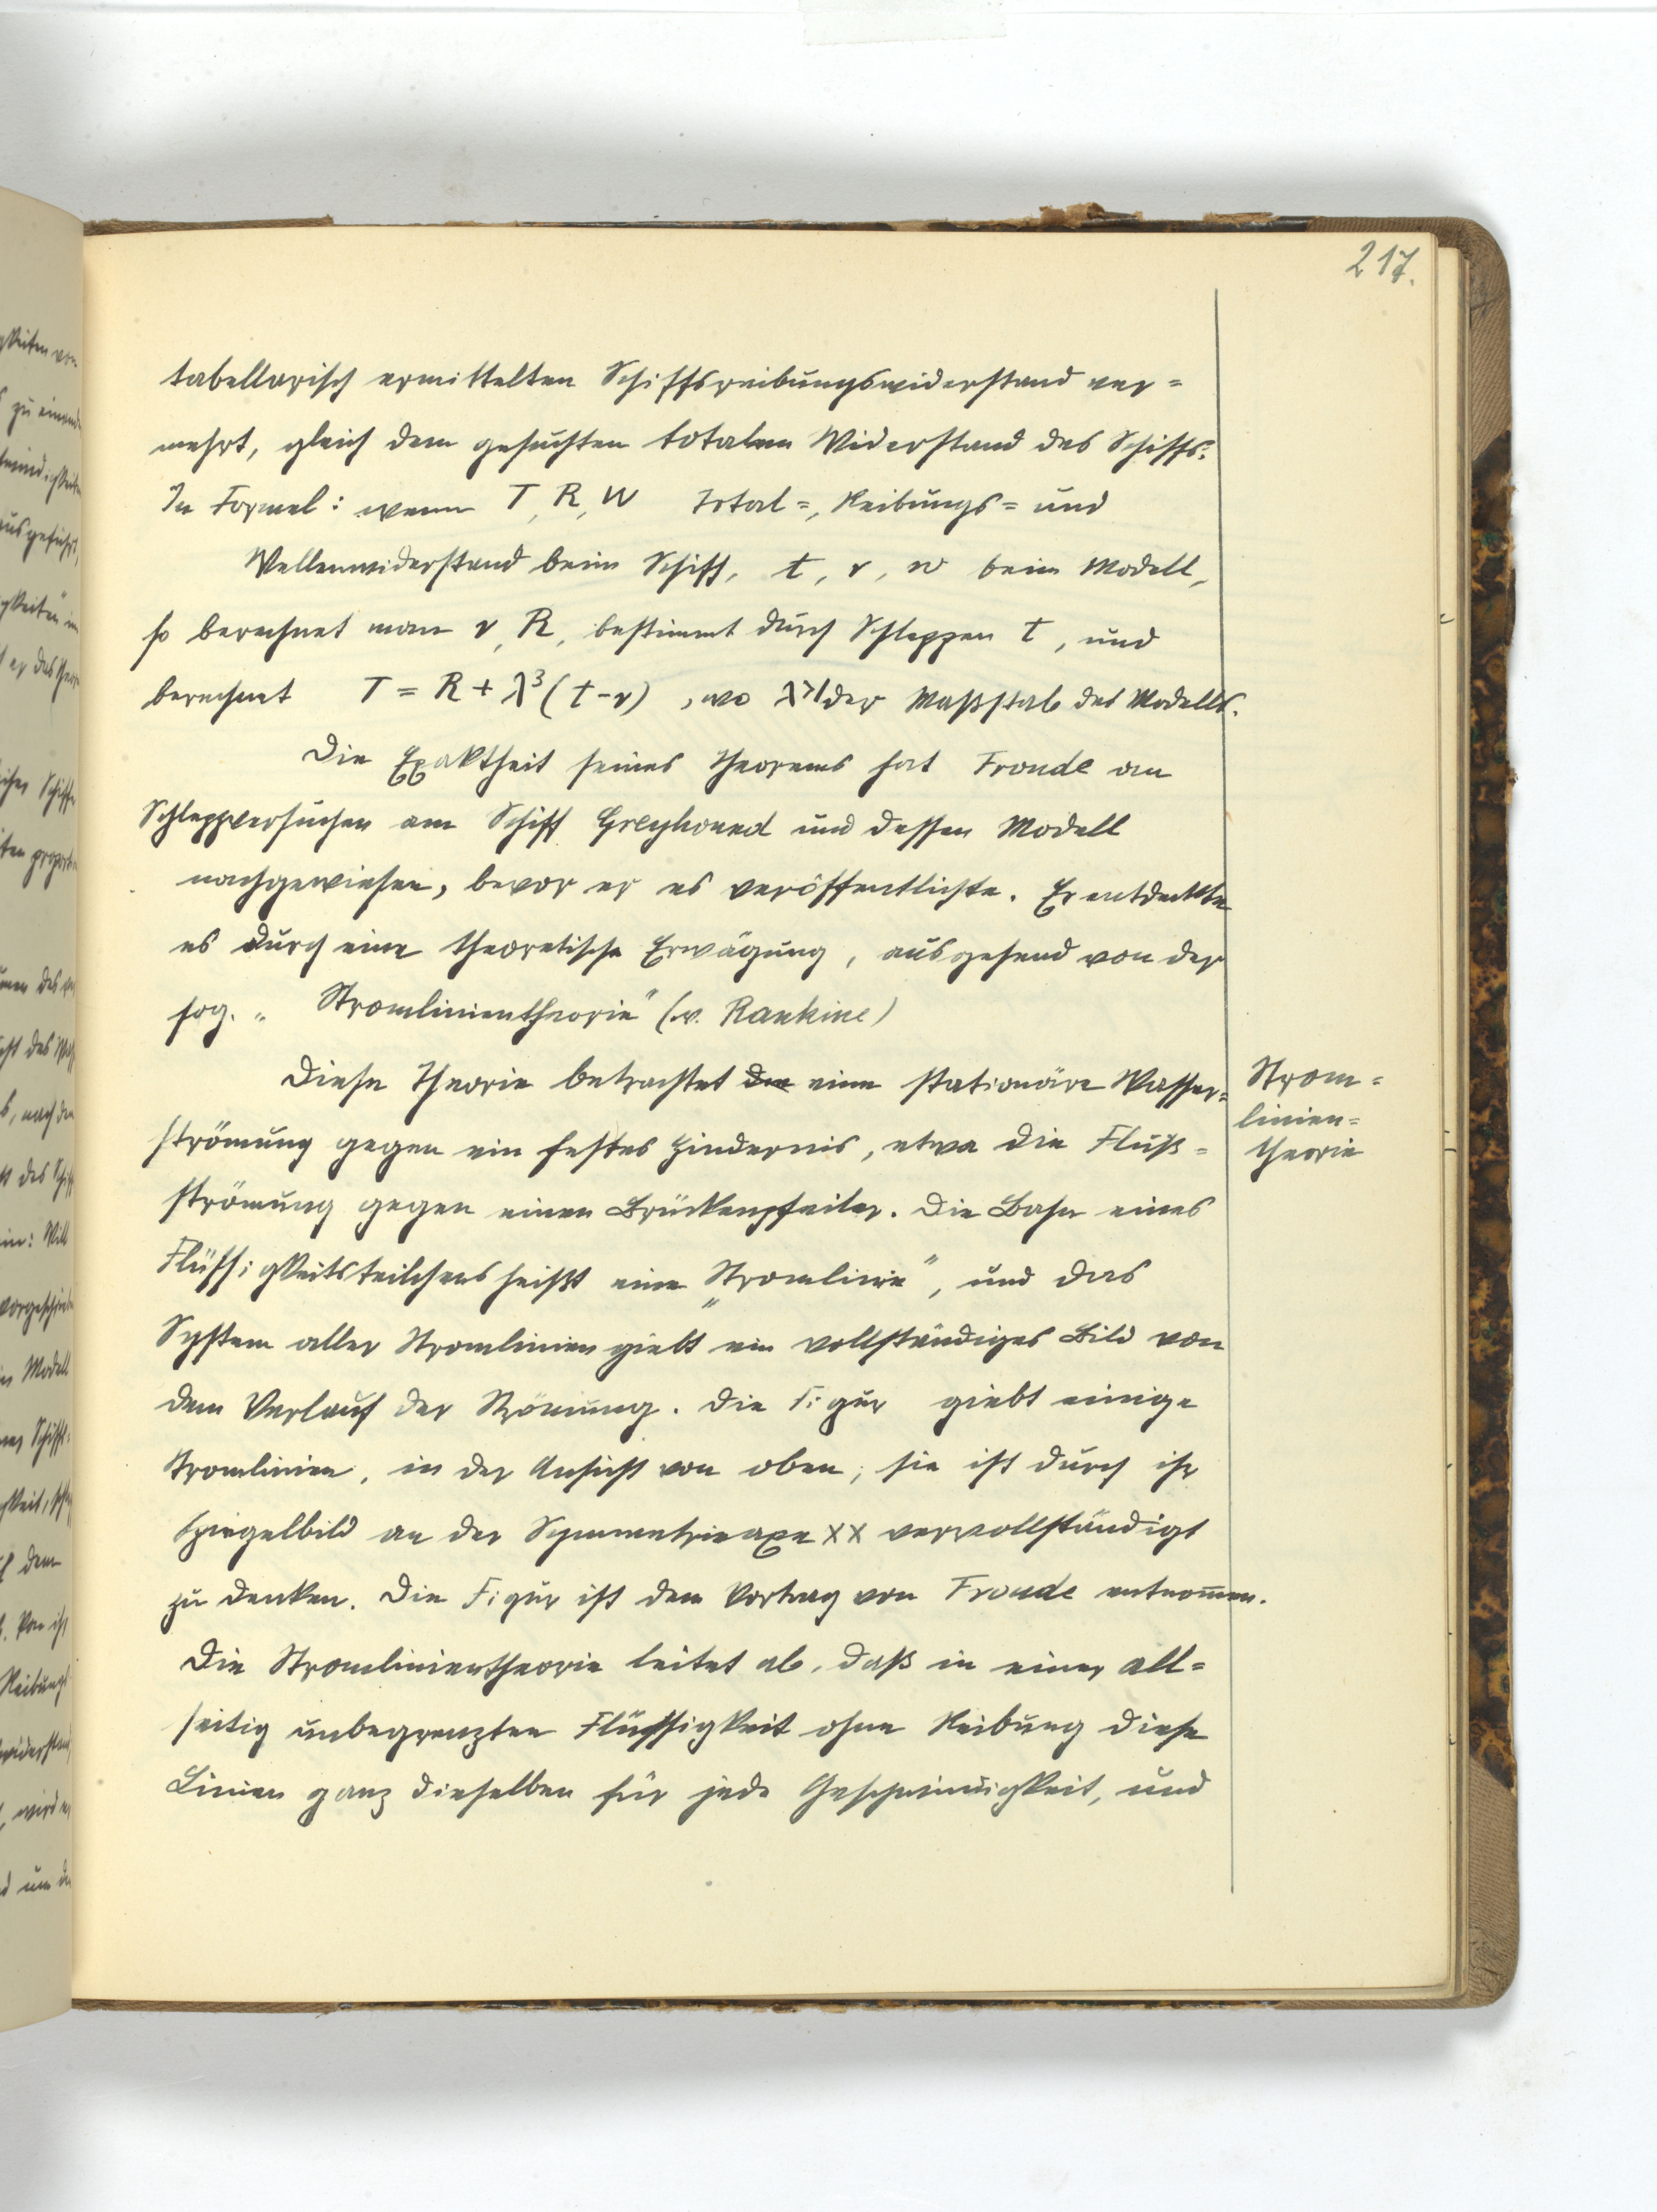 217.
tabellarisch ermittelten Schiffsreibungswiderstand ver=
mehrt, gleich dem gesuchten totalen Widerstand des Schiffs.
In Formel: wenn T, R, W Total=, Reibungs= und
Wellenwiderstand beim Schiff, t, r, w beim Modell,
so berechnet man r, R, bestimmt durch Schleppen t, und
berechnet T = R + λ³ (t-r) , wo λ>1 der Maßstab des Modells.
Die Exaktheit seines Theorems hat Froude an
Schleppversuchen am Schiff Greyhound und dessen Modell
nachgewiesen, bevor er es veröffentlichte. Er entdeckte
es durch eine theoretische Erwägung, ausgehend von der
sog. „Stromlinientheorie" (v. Rankine)
Diese Theorie betrachtet eine stationäre Wasser=
strömung gegen ein festes Hindernis, etwa die Fluß=
strömung gegen einen Brückenpfeiler. Die Bahn eines
Flüssigkeitsteilchens heißt eine „Stromlinie", und das
System aller Stromlinien giebt ein vollständiges Bild von
dem Verlauf der Strömung. Die Figur giebt einige
Stromlinien, in der Ansicht von oben; sie ist durch ihr
Spiegelbild an der Symmetrieaxe XX vervollständigt
zu denken. Die Figur ist dem Vortrag von Froude entnommen.
Die Stromlinientheorie leitet ab, daß in einer all=
seitig unbegrenzten Flüssigkeit ohne Reibung diese
Linien ganz dieselben für jede Geschwindigkeit, und
Strom=
linien=
theorie